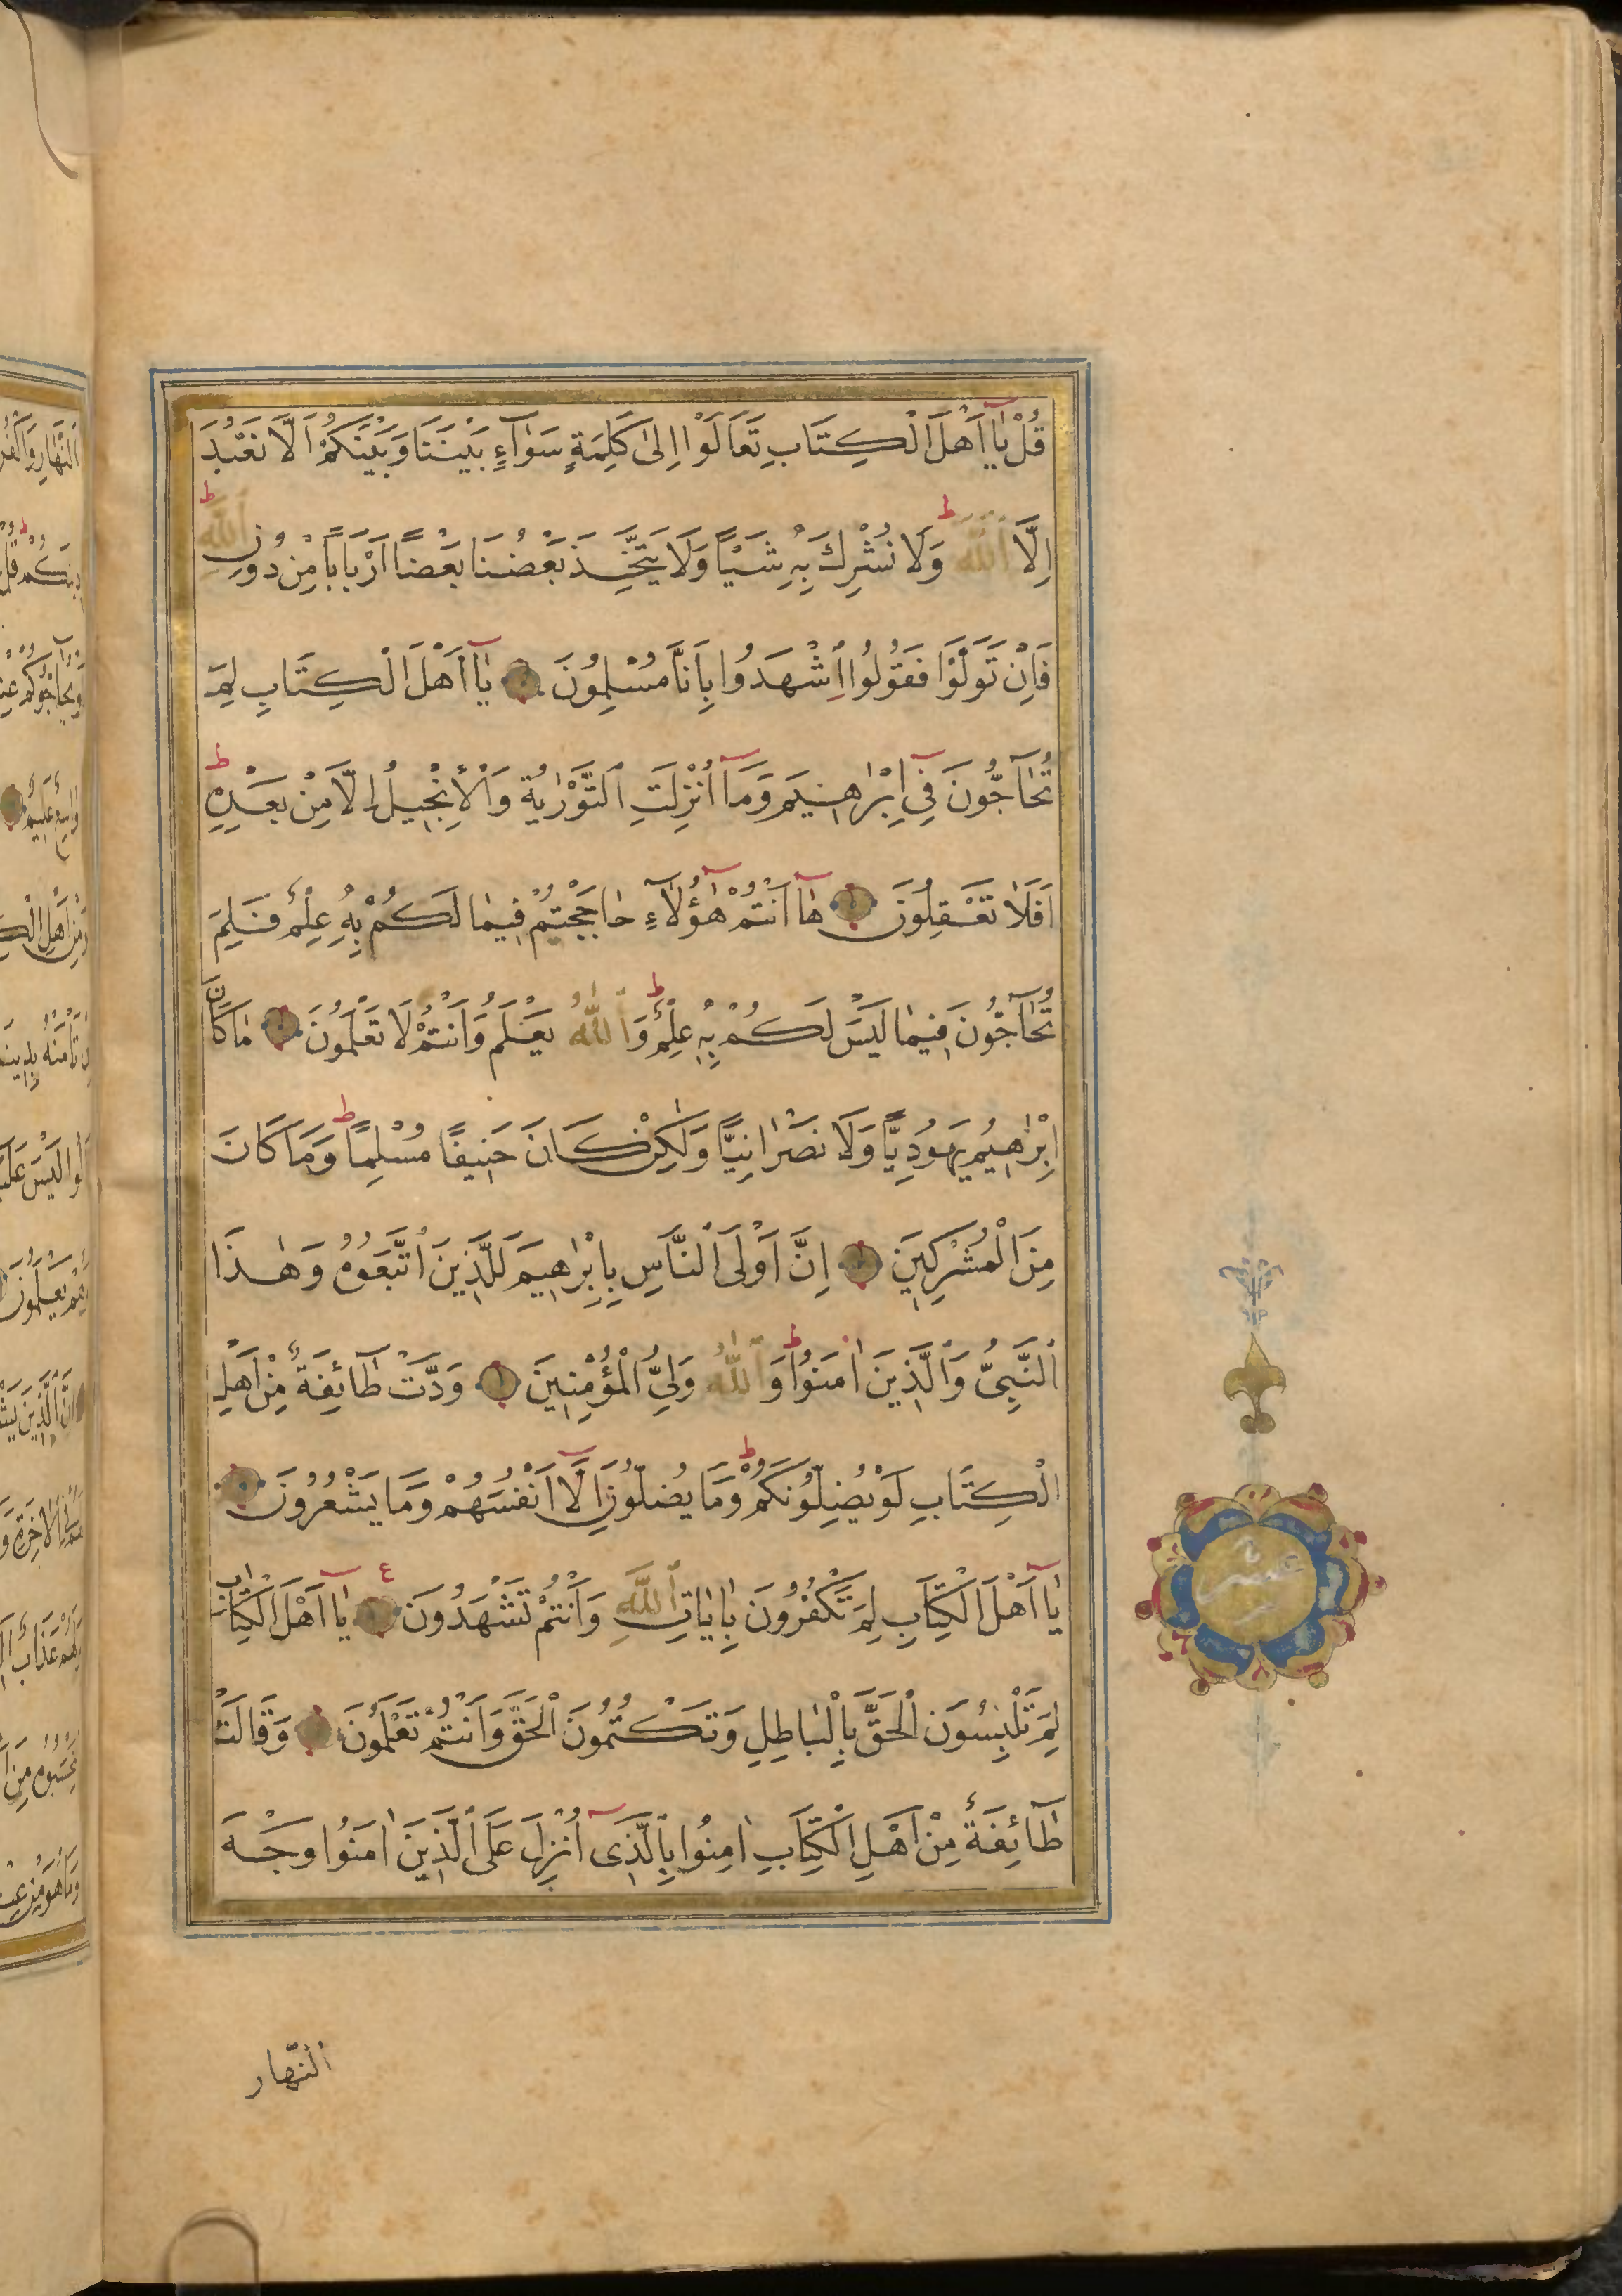 قُلْ يَٓا اَهْلَ الْكِتَابِ تَعَالَوْا اِلٰى كَلِمَةٍ سَوَٓاءٍ بَيْنَنَا وَبَيْنَكُمْ اَلَّا نَعْبُدَ
اِلَّا اللّٰهَ ط وَلَا نُشْرِكَ بِهِ شَيْـًٔا وَلَا يَتَّخِذَ بَعْضُنَا بَعْضًا اَرْبَابًا مِنْ دُونِ اللّٰهِ ط
فَاِنْ تَوَلَّوْا فَقُولُوا اشْهَدُوا بِاَنَّا مُسْلِمُونَ يَٓا اَهْلَ الْكِتَابِ لِمَ
تُحَٓاجُّونَ فِٓى اِبْرٰاهِيمَ وَمَٓا اُنْزِلَتِ التَّوْرٰيةُ وَالْاِنْجِيلُ اِلَّا مِنْ بَعْدِهِ ط
اَفَلَا تَعْقِلُونَ هَٓا اَنْتُمْ هٰٓؤُلَٓاءِ حَاجَجْتُمْ فِيمَا لَكُمْ بِهِ عِلْمٌ فَلِمَ
تُحَٓاجُّونَ فِيمَا لَيْسَ لَكُمْ بِهِ عِلْمٌ ط وَاللّٰهُ يَعْلَمُ وَاَنْتُمْ لَا تَعْلَمُونَ مَا كَانَ
اِبْرٰهِيمُ يَهُودِيًّا وَلَا نَصْرَانِيًّا وَلٰكِنْ كَانَ حَنِيفًا مُسْلِمًا ط وَمَا كَانَ
مِنَ الْمُشْرِكِينَ اِنَّ اَوْلَى النَّاسِ بِاِبْرٰهِيمَ لَلَّذِينَ اتَّبَعُوهُ وَهٰذَا
النَّبِىُّ وَالَّذِينَ اٰمَنُوا ط وَاللّٰهُ وَلِىُّ الْمُؤْمِنِينَ وَدَّتْ طَٓائِفَةٌ مِنْ اَهْلِ
الْكِتَابِ لَوْ يُضِلُّونَكُمْ ط وَمَا يُضِلُّونَ اِلَّٓا اَنْفُسَهُمْ وَمَا يَشْعُرُونَ
يَٓا اَهْلَ الْكِتَابِ لِمَ تَكْفُرُونَ بِاٰيَاتِ اللّٰهِ وَاَنْتُمْ تَشْهَدُونَ ع يَٓا اَهْلَ الْكِتَابِ
لِمَ تَلْبِسُونَ الْحَقَّ بِالْبَاطِلِ وَتَكْتُمُونَ الْحَقَّ وَاَنْتُمْ تَعْلَمُونَ وَقَالَتْ
طَٓائِفَةٌ مِنْ اَهْلِ الْكِتَابِ اٰمِنُوا بِالَّذِٓى اُنْزِلَ عَلَى الَّذِينَ اٰمَنُوا وَجْهَ
عشر
النّهار